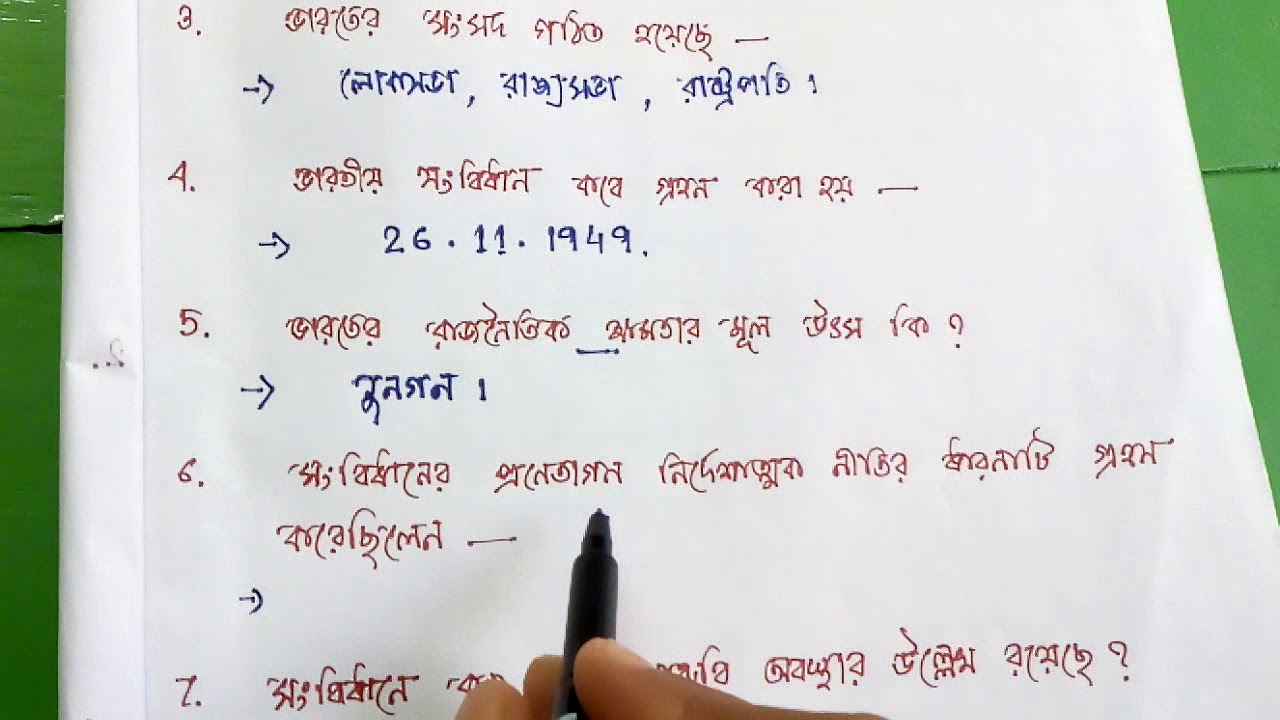 3. ভারতের সংসদ গঠিত হয়েছে —
→ লোকসভা, রাজ্যসভা, রাষ্ট্রপতি।
4. ভারতীয় সংবিধান কবে গ্রহন করা হয় —
→ 26.11.1949.
5. ভারতের রাজনৈতিক ক্ষমতার মূল উৎস কি?
→ জনগন।
6. সংবিধানের প্রনেতাগন নির্দেশাত্মক নীতির ধারনাটি গ্রহন
করেছিলেন —
→
7. সংবিধানে অবস্থার উল্লেখ রয়েছে?